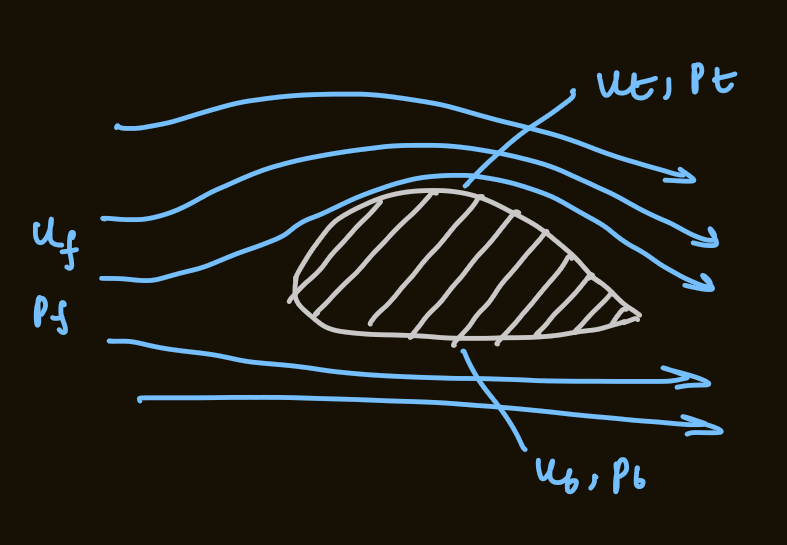 ut, pt
uf
pf
ub, pb